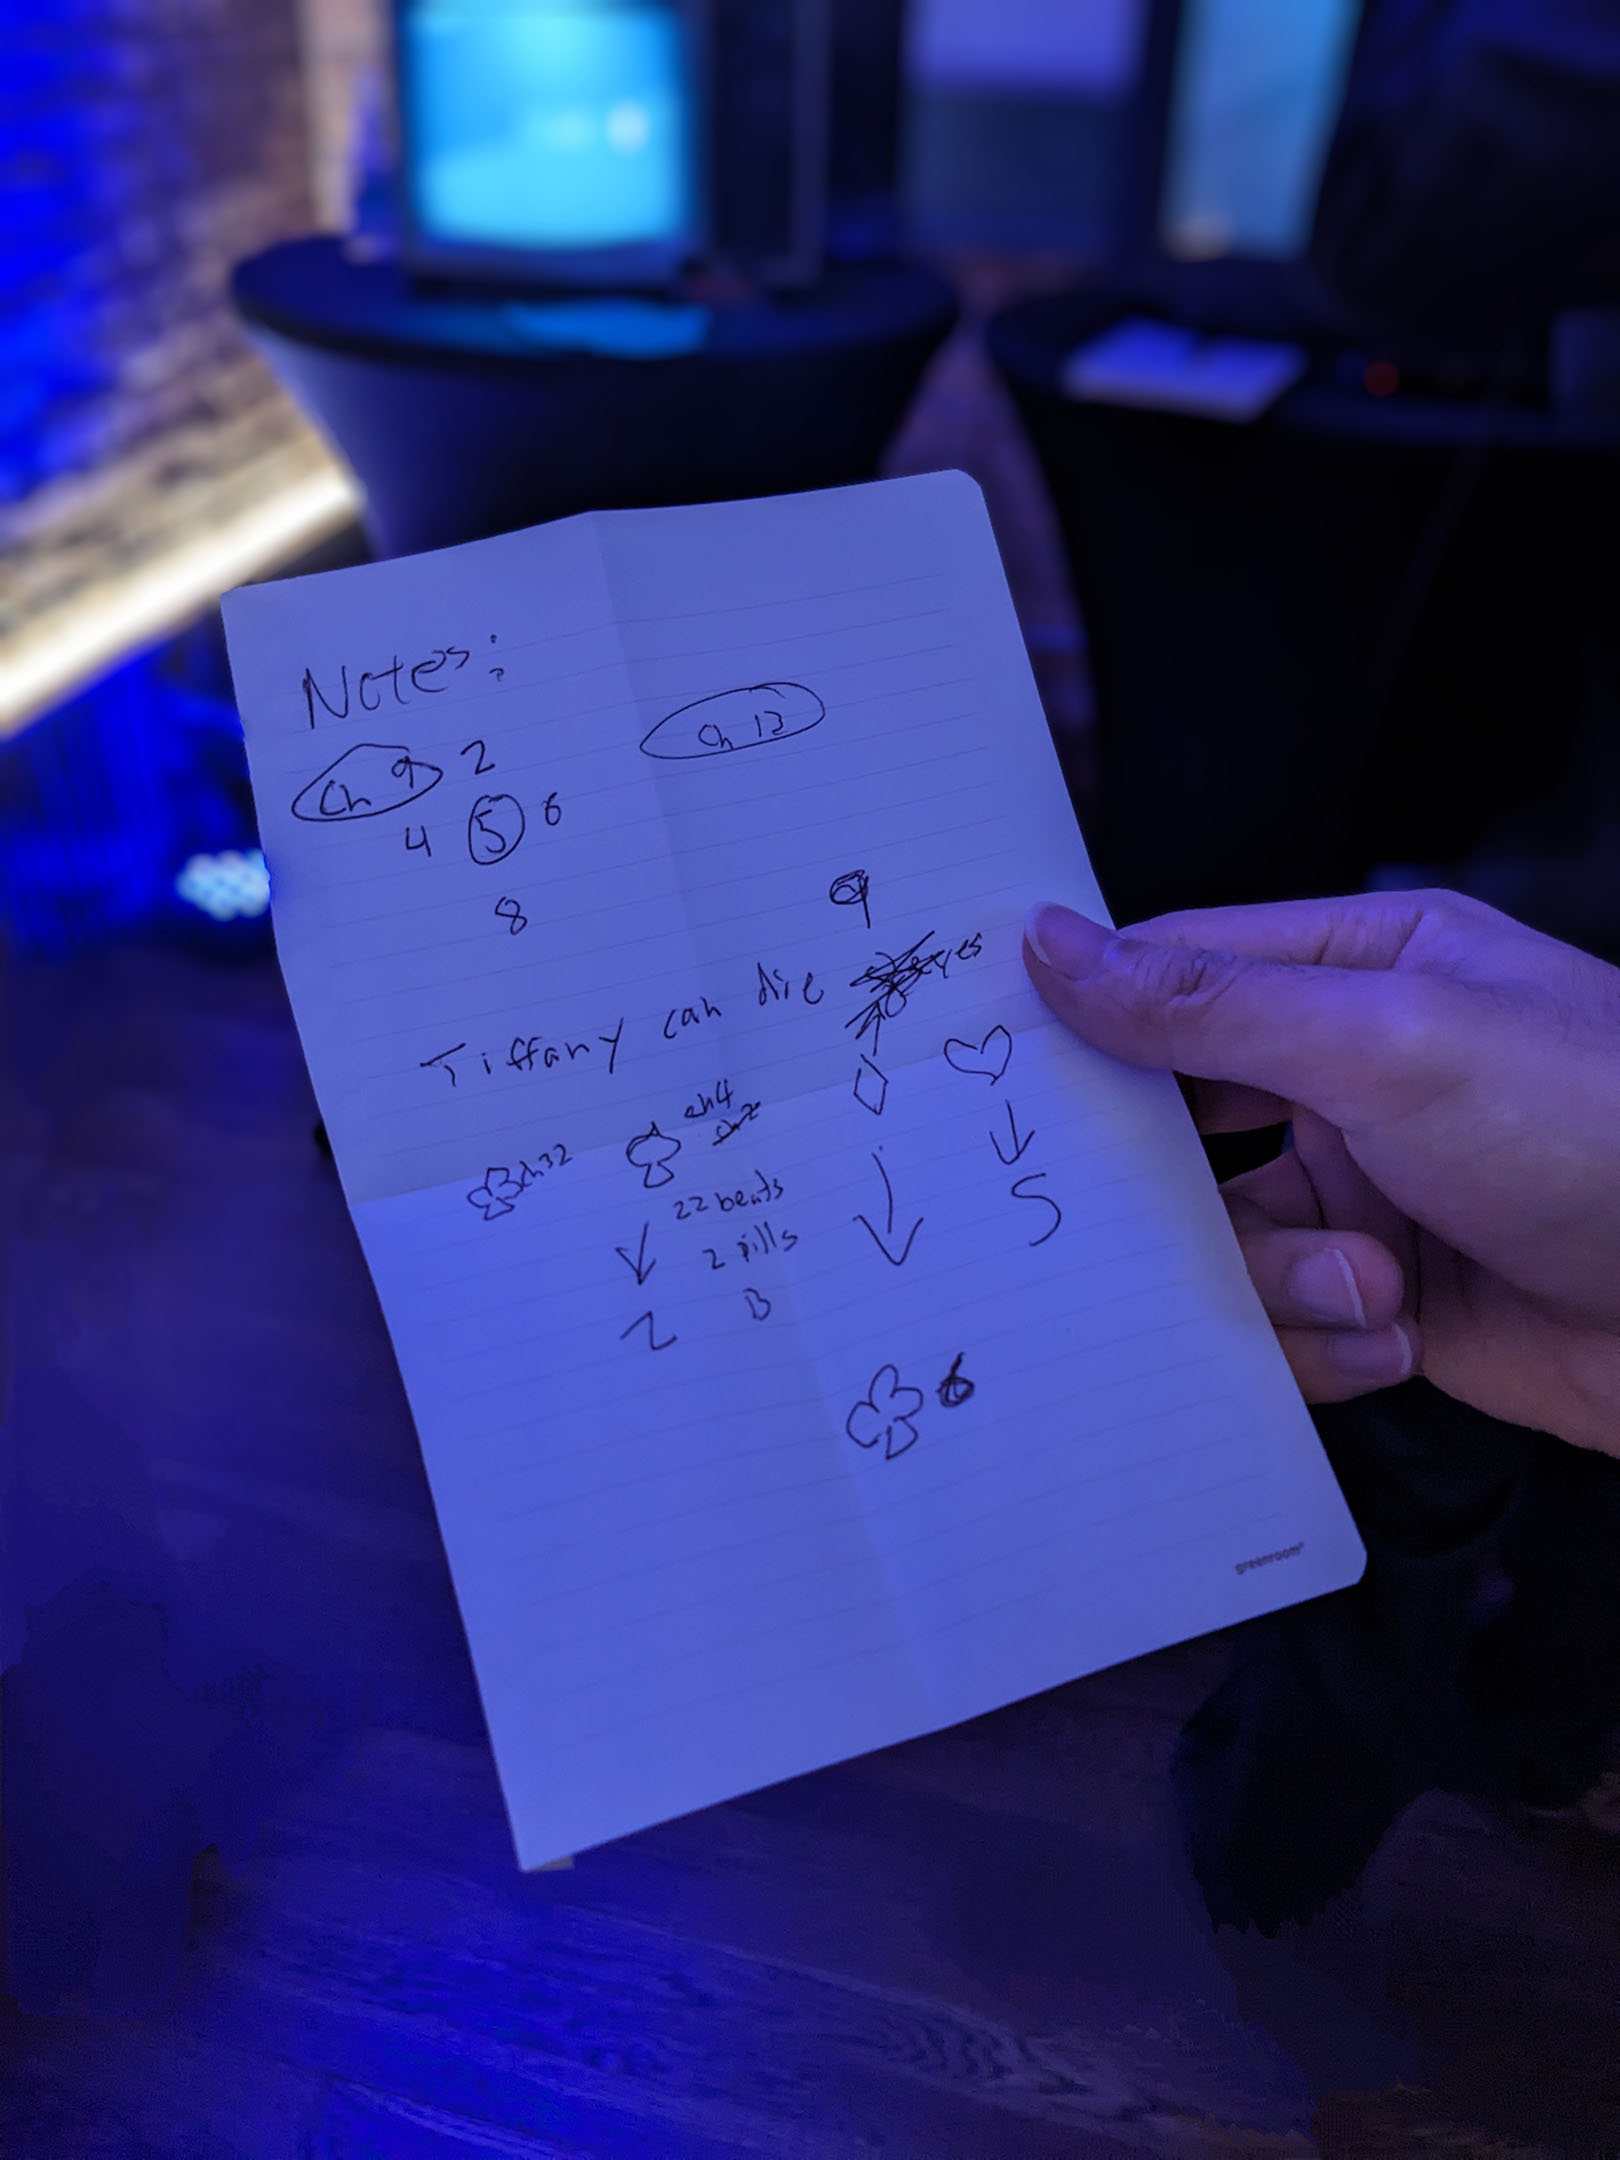 Notes:
Ch 9 2
Ch 13
4 5 6
8
9
Tiffany can die yes
ch 32
ch4
ch2
22 beats
2 pills
B
2
S
6
greenroom